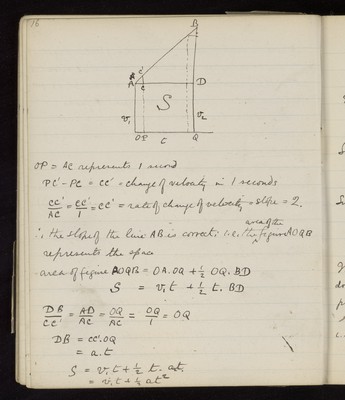 16
B
A C' 
A C D
S
v₁ v₂
O P C Q
OP = AC represents 1 second
PC' - PC = CC' = change of velocity in 1 seconds
CC'/AC = CC'/1 = CC' = rate of change of velocity = slope = 2.
∴ the slope of the line AB is correct; i.e. the area of the figure AOQB
represents the space
area of figure AOQB = OA.OQ + ½ OQ.BD
S = v₁t + ½ t. BD
DB/CC' = AD/AC = OQ/AC = OQ/1 = OQ
DB = CC'.OQ
= a.t
S = v₁t + ½ t. at.
= v₁t + ½ at²